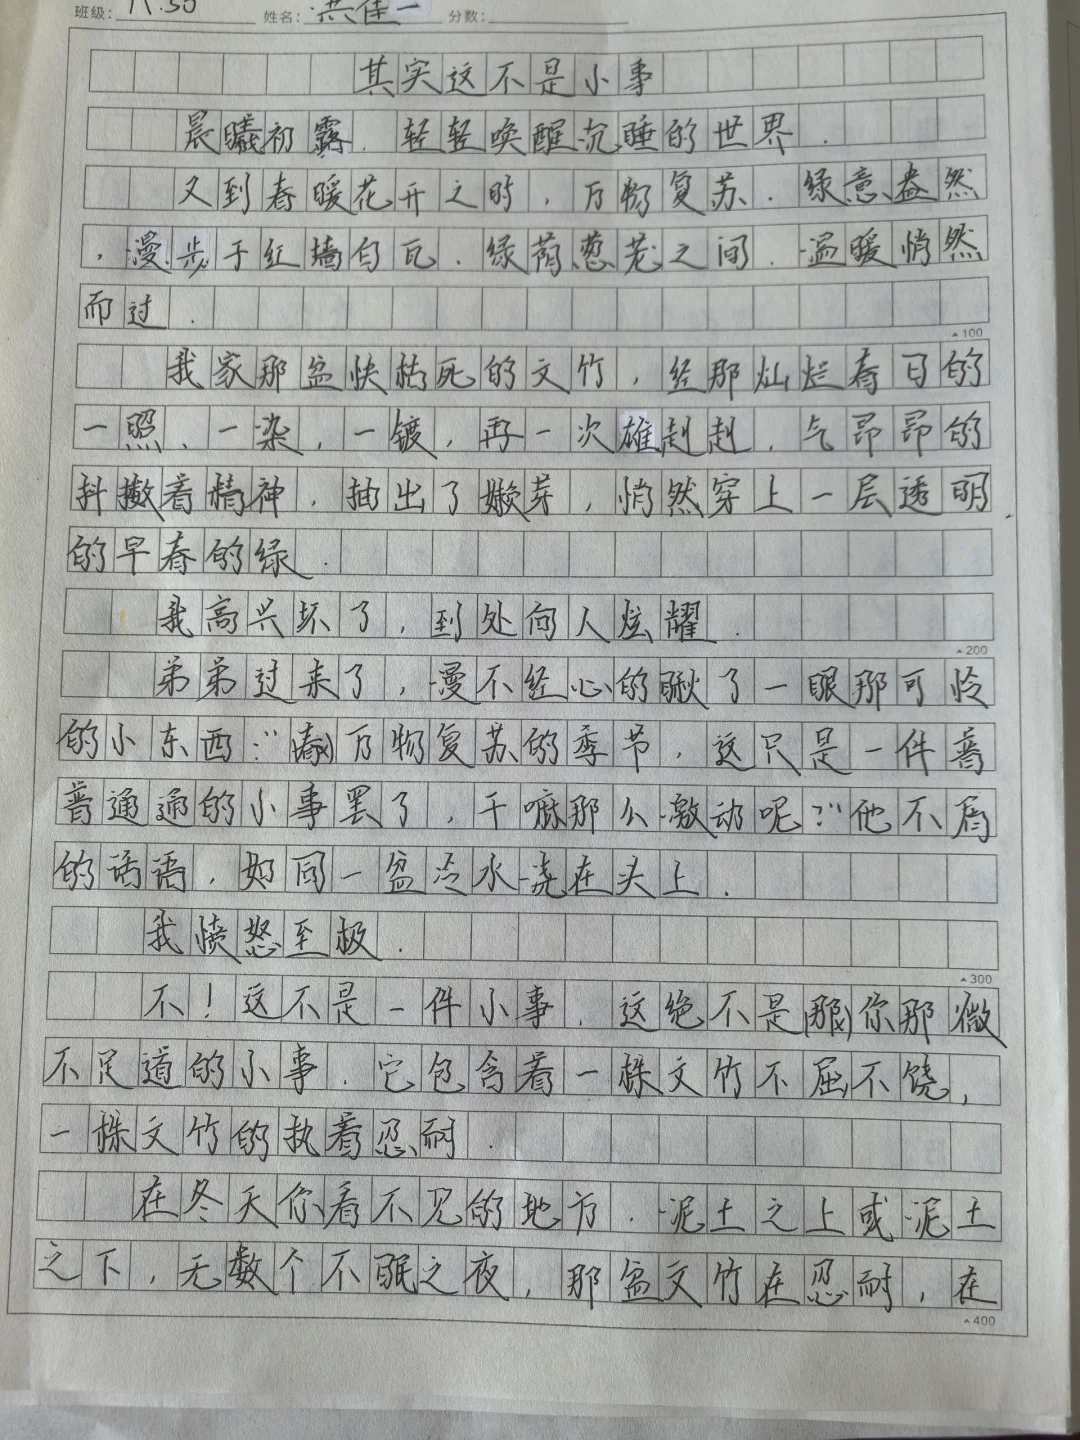 班级：八.30 姓名：洪佳一 分数：
其实这不是小事
晨曦初露．轻轻唤醒沉睡的世界．
又到春暖花开之时，万物复苏．绿意盎然
，漫步于红墙白瓦．绿荫葱茏之间．温暖悄然
而过．
▲100
我家那盆快枯死的文竹，经那灿烂春日的
一照、一染，一镀，再一次雄赳赳．气昂昂的
抖擞着精神，抽出了嫩芽，悄然穿上一层透明
的早春的绿．
我高兴坏了，到处向人炫耀．
▲200
弟弟过来了，漫不经心的瞅了一眼那可怜
的小东西：“万物复苏的季节，这只是一件普
普通通的小事罢了，干嘛那么激动呢？”他不屑
的话语，如同一盆冷水浇在头上．
我愤怒至极．
▲300
不！这不是一件小事．这绝不是你那微
不足道的小事．它包含着一株文竹不屈不饶，
一株文竹的执着忍耐．
在冬天你看不见的地方．泥土之上或泥土
之下，无数个不眠之夜，那盆文竹在忍耐，在
▲400